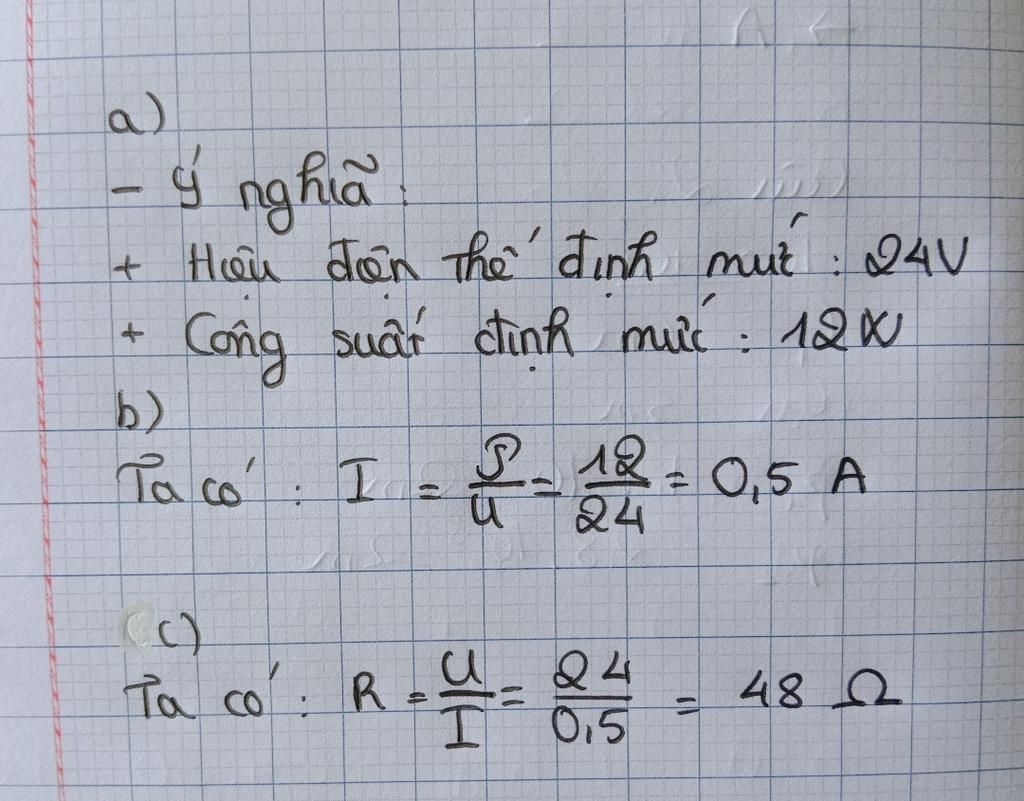 a)
- Ý nghĩa :
+ Hiệu điện thế định mức : 24V
+ Công suất định mức : 12W
b)
Ta có : I = P/U = 12/24 = 0,5 A
c)
Ta có : R = U/I = 24/0,5 = 48 Ω